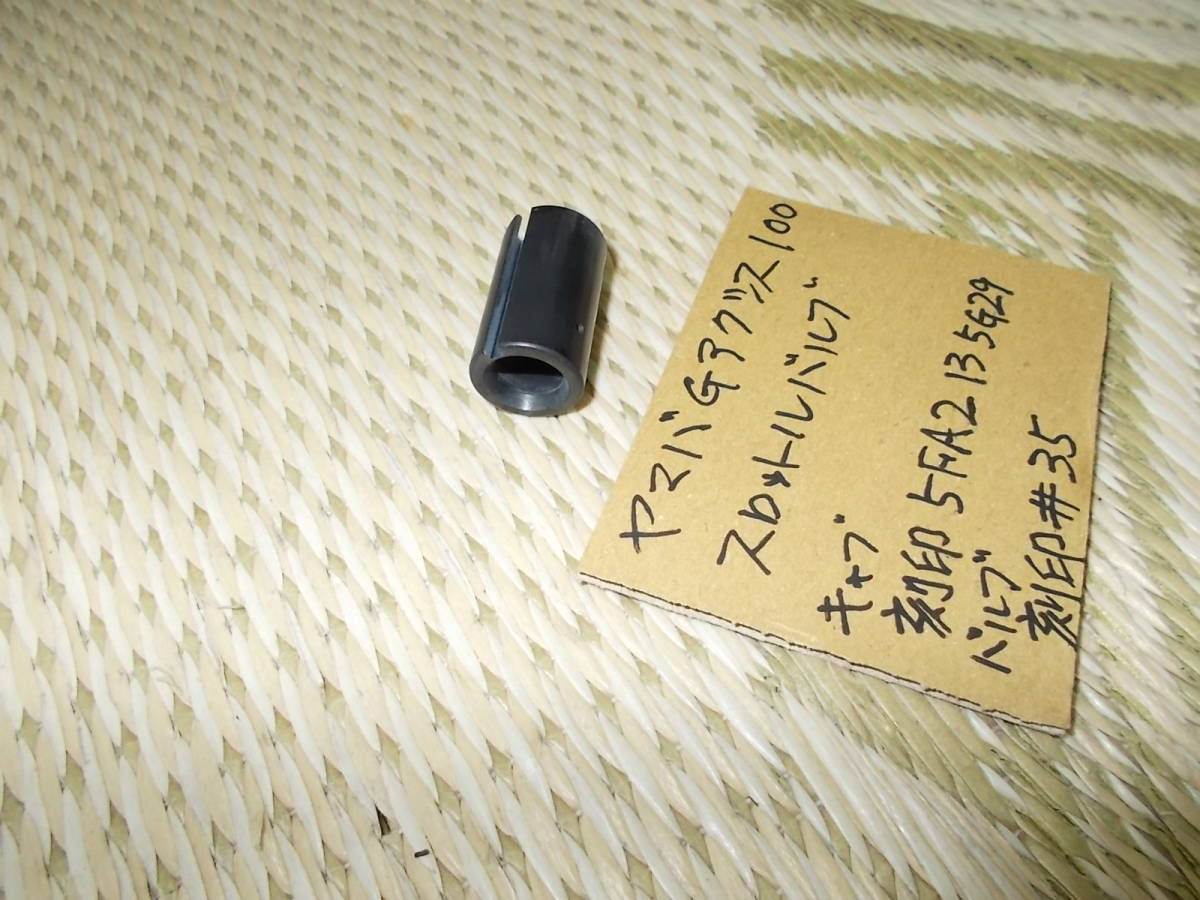 ヤマハGアクシス100
スロットルバルブ
キャブ
刻印5FA2135G29
バルブ
刻印#35